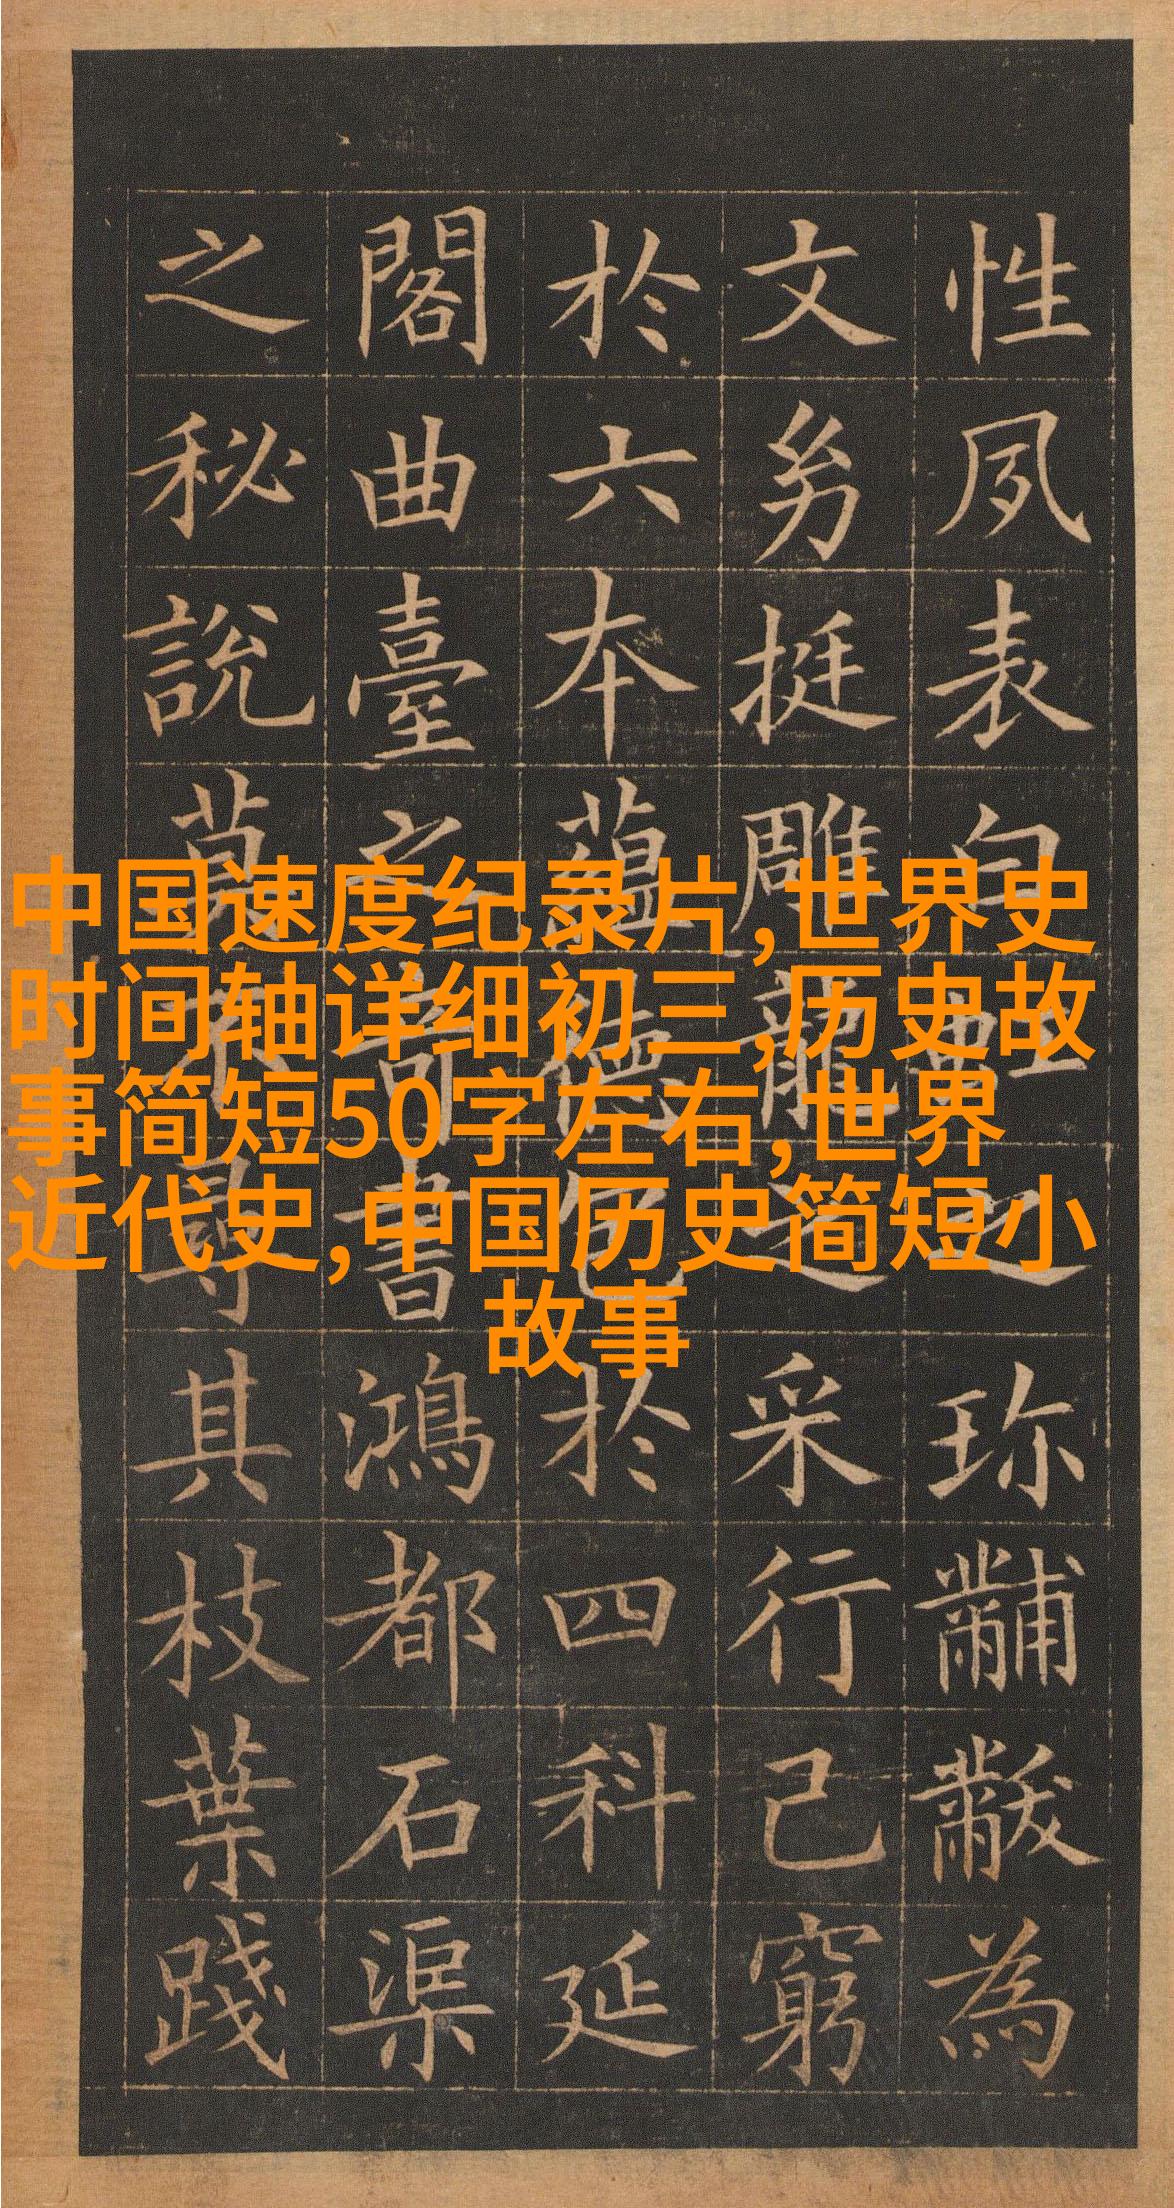 性夙表白虹之珎黼黻為
文㓜挺雕龍之采行己窮
於六本蘊德包於四科延
閣曲臺之奇書鴻都石渠
之秘說莫不尋其枝葉踐
中国速度纪录片,世界史
时间轴详细初三,历史故
事简短50字左右,世界
近代史,中国历史简短小
故事